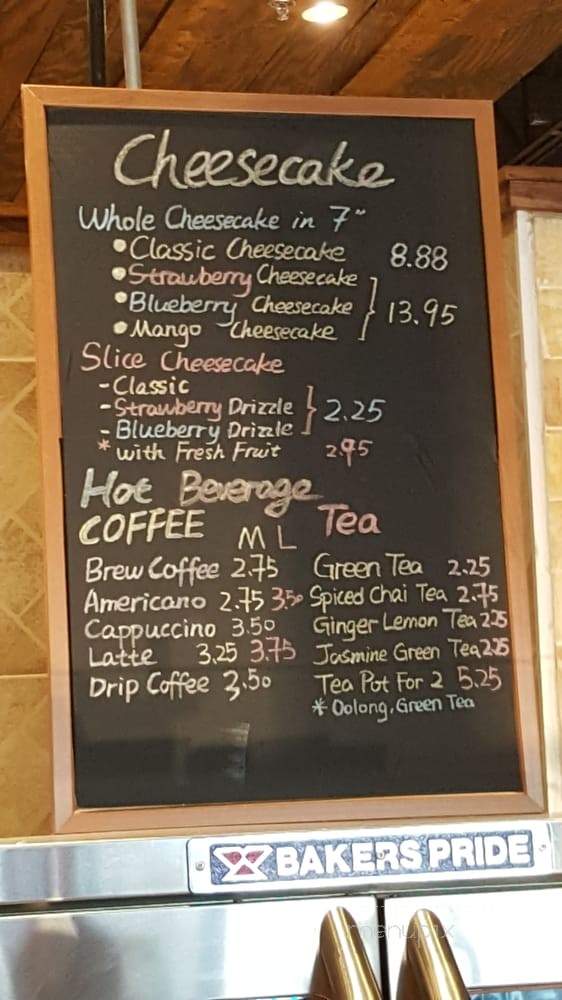 Cheesecake
Whole Cheesecake in 7"
• Classic Cheesecake 8.88
• Strawberry Cheesecake
• Blueberry Cheesecake } 13.95
• Mango Cheesecake
Slice Cheesecake
- Classic
- Strawberry Drizzle } 2.25
- Blueberry Drizzle
* with Fresh Fruit 2.95
Hot Beverage
COFFEE M L Tea
Brew Coffee 2.75 Green Tea 2.25
Americano 2.75 3.50 Spiced Chai Tea 2.75
Cappuccino 3.50 Ginger Lemon Tea 2.25
Latte 3.25 3.75 Jasmine Green Tea 2.25
Drip Coffee 3.50 Tea Pot For 2 5.25
* Oolong, Green Tea
BAKERS PRIDE
menupix